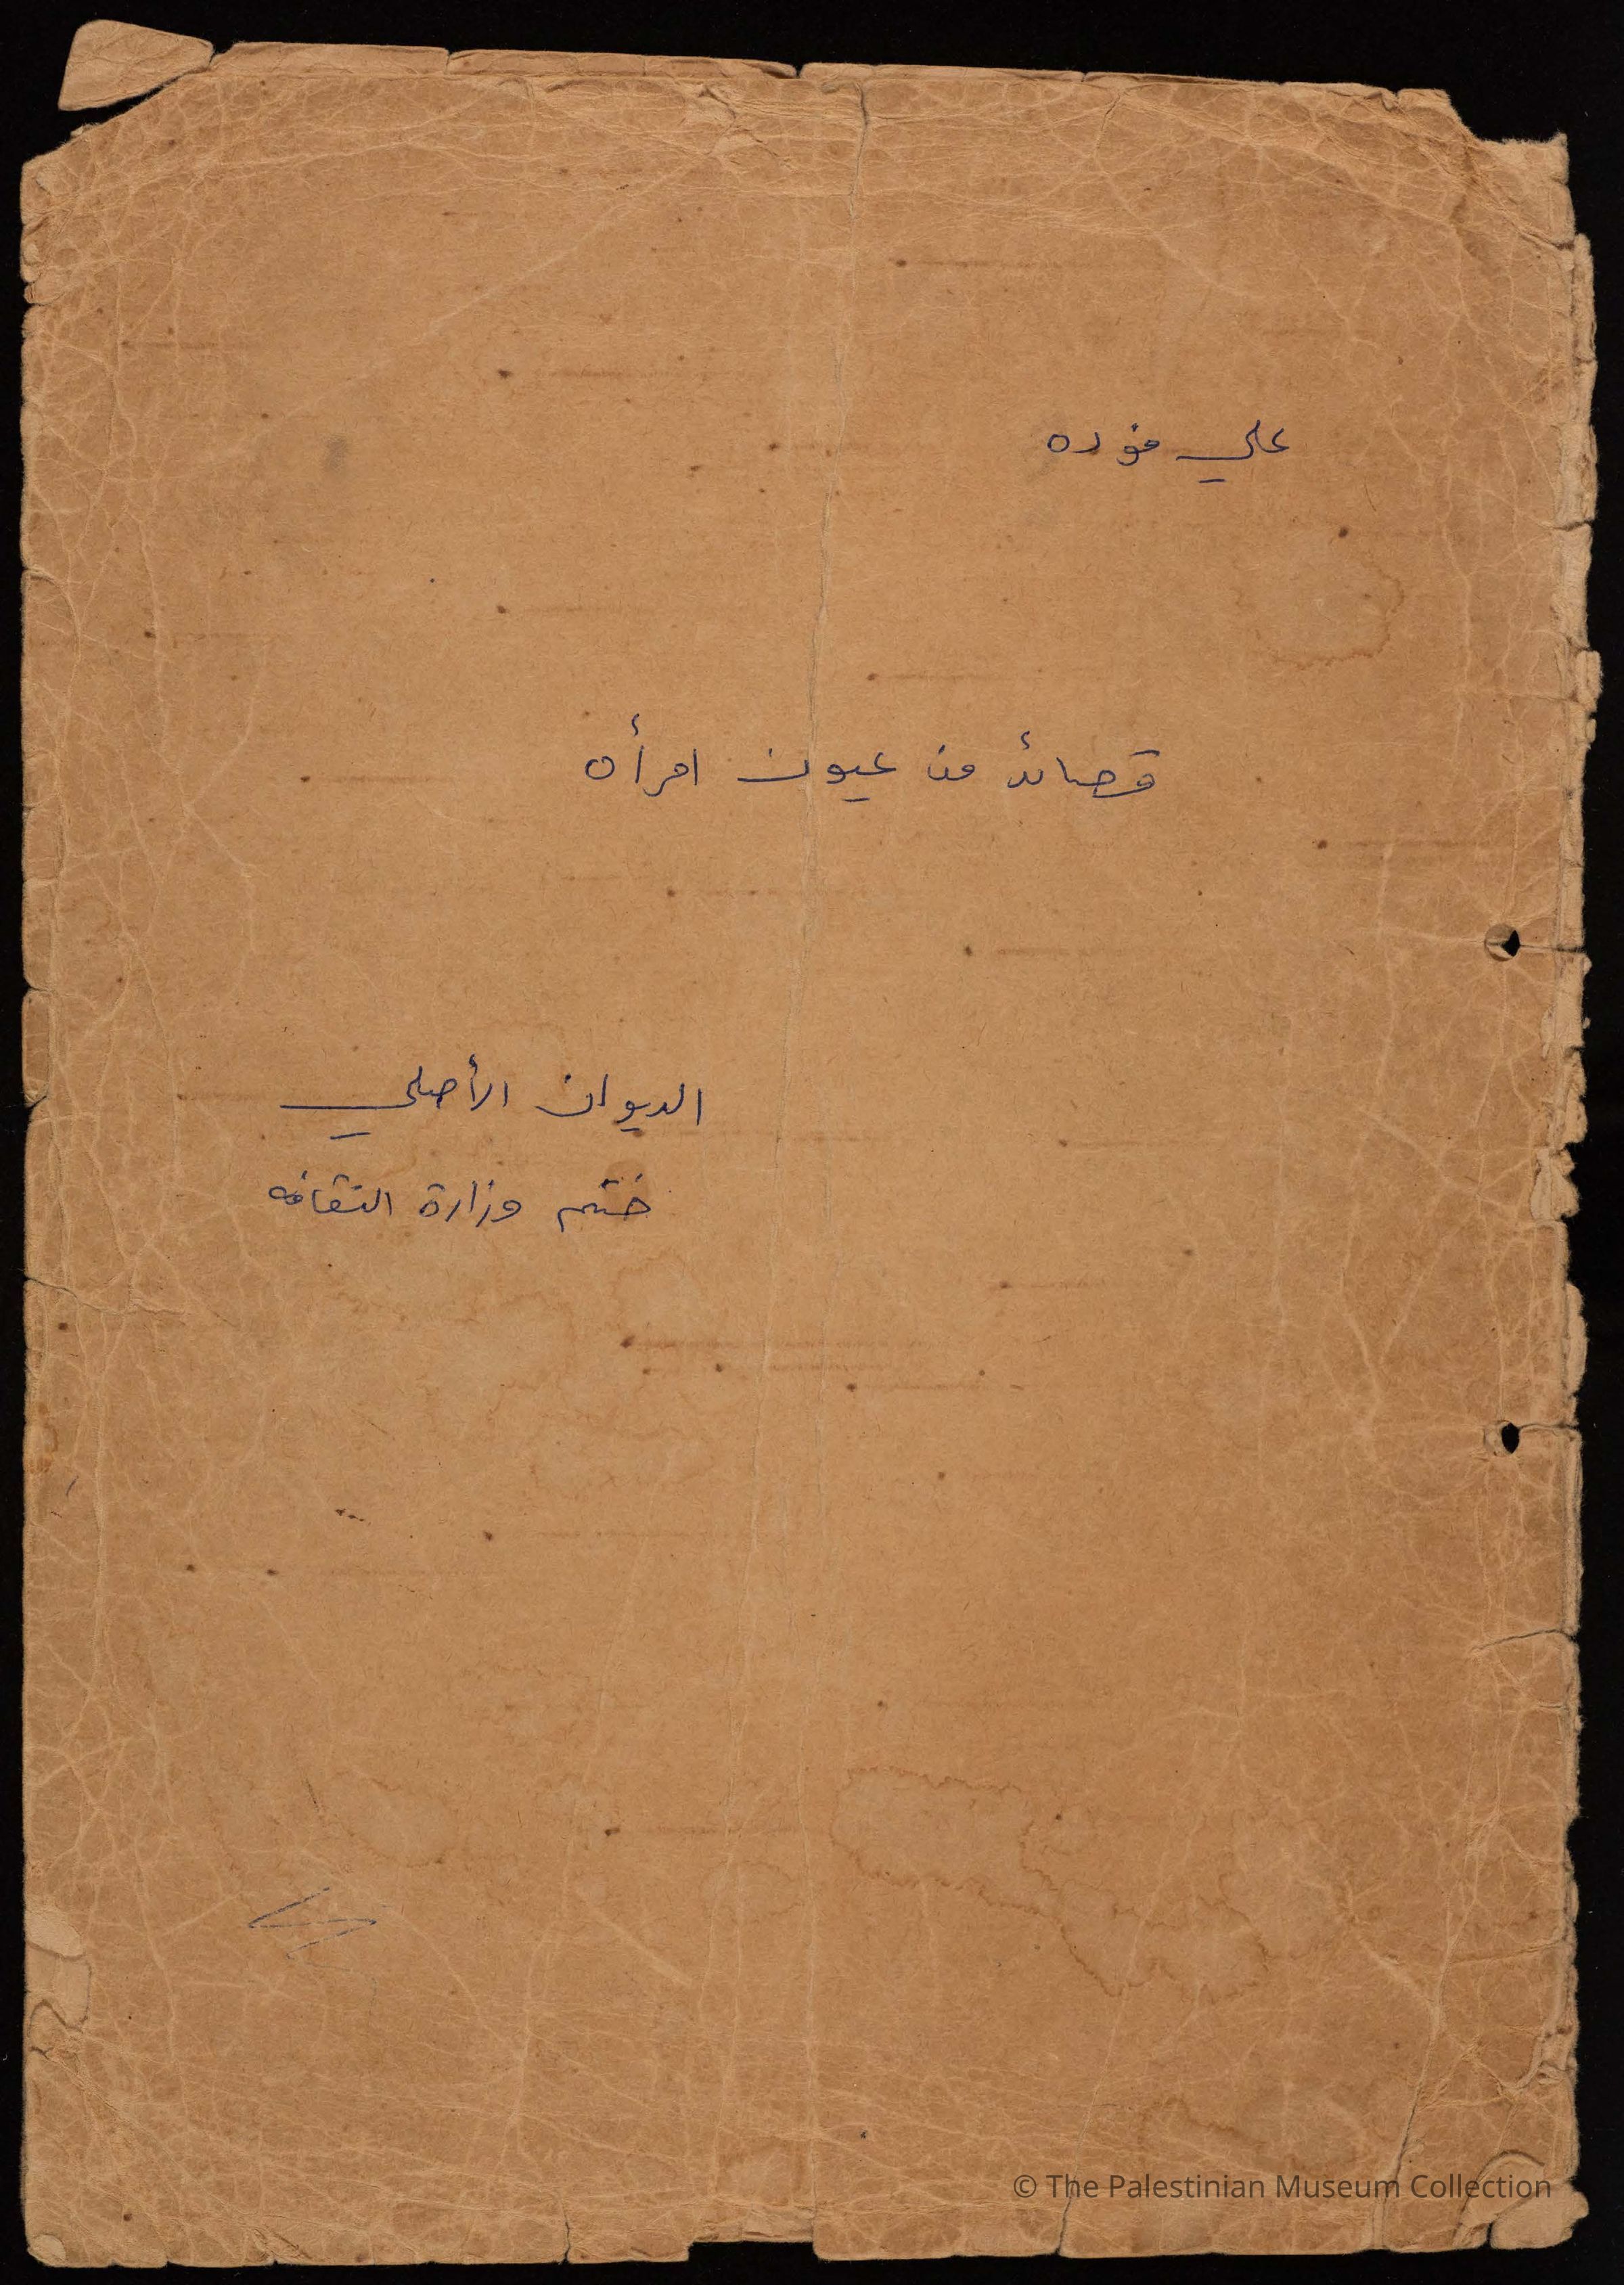 علي فوده
قصائد من عيون امرأه
الديوان الأصلي
ختم وزارة الثقافه
© The Palestinian Museum Collection